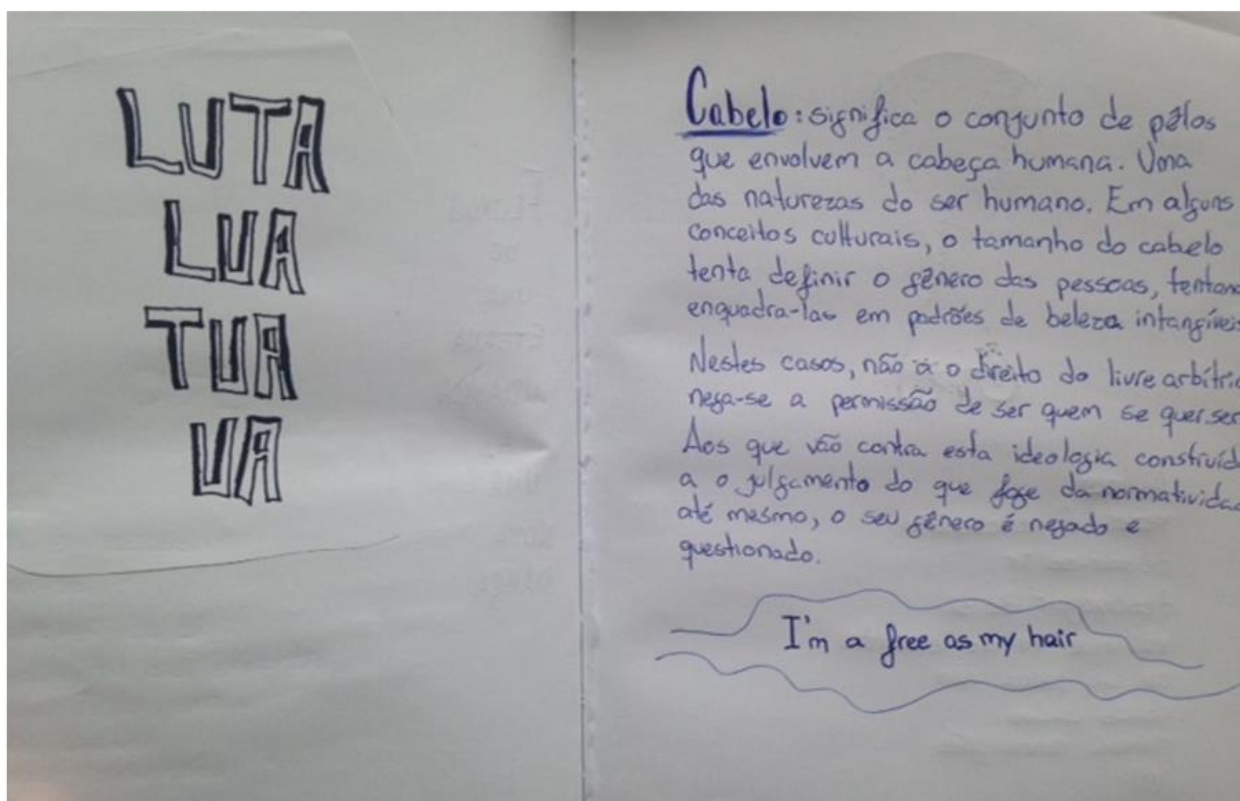 LUTA
LUA
TUA
UA
Cabelo: significa o conjunto de pêlos
que envolvem a cabeça humana. Uma
das naturezas do ser humano. Em alguns
conceitos culturais, o tamanho do cabelo
tenta definir o gênero das pessoas, tentan
enquadra-las em padrões de beleza intangíveis
Nestes casos, não a o direito do livre arbítri
nega-se a permissão de ser quem se quer ser
Aos que vão contra esta ideologia construíd
a o julgamento do que foge da normativida
até mesmo, o seu gênero é negado e
questionado.
I'm a free as my hair